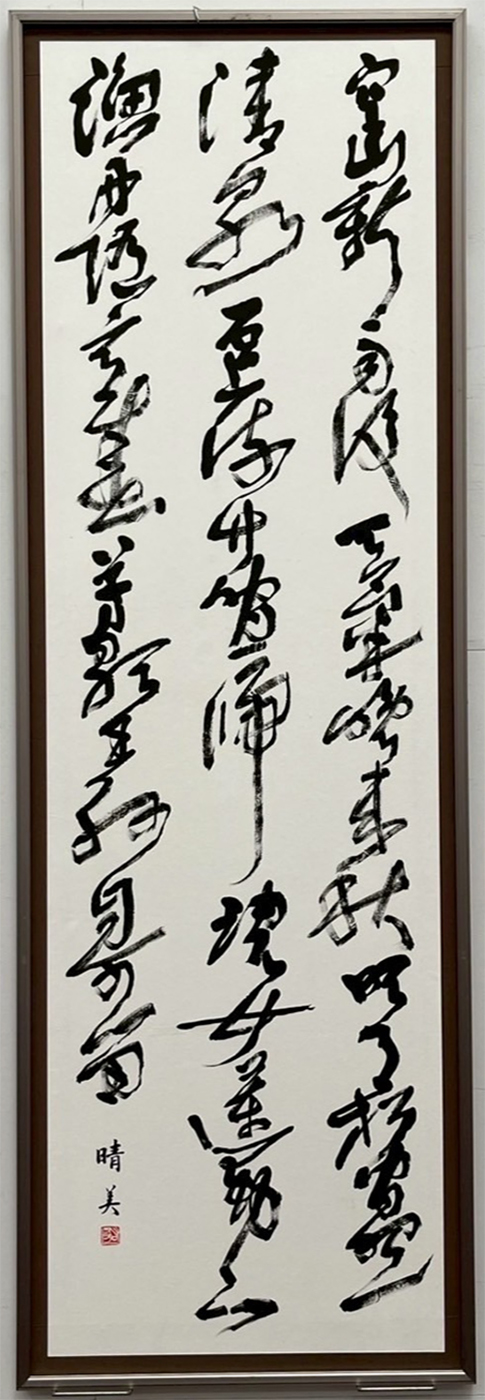 空山新雨後天氣晚來秋明月松間照
清泉石上流竹喧歸浣女蓮動下
漁舟隨意春芳歇王孫自可留
晴美